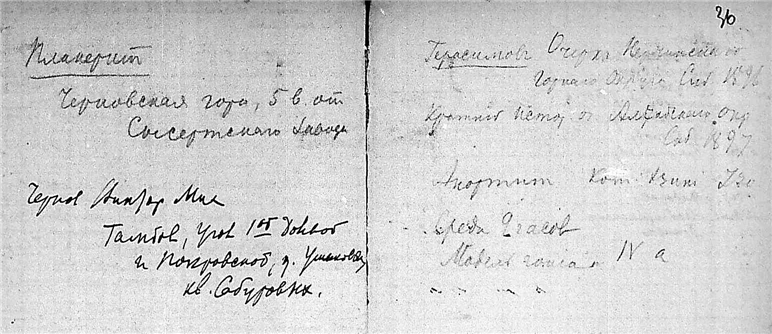 Планерит
Черновская гора, 5 в. от
Сысертского завода
Чернов Виктор Мих
Тамбов, угол 1ой Долевой
и Покровской, д. Ушаковой
кв. Сабуровых.
36
Герасимов Очерк Нерчинского
горного округа Спб 1896
Краткий истор о Алтайского окр
Спб 1897
Анортит
Среда 9 часов
Модель IV а
" " " "